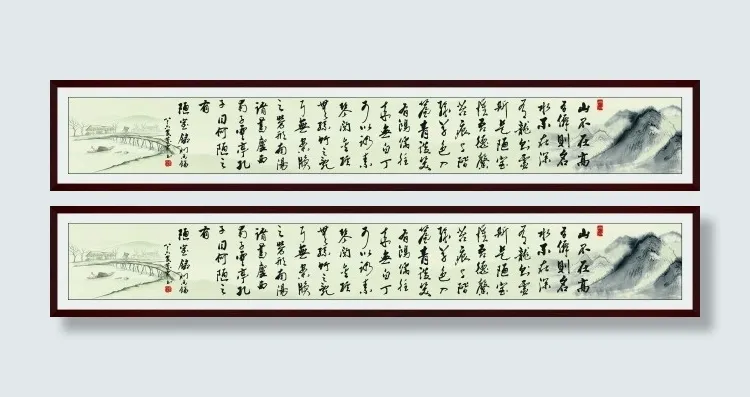 山不在高
有仙則名
水不在深
有龍則靈
斯是陋室
惟吾德馨
苔痕上階
綠草色入
簾青談笑
有鴻儒往
來無白丁
可以調素
琴閱金經
無絲竹之亂
耳無案牘
之勞形南陽
諸葛廬西
蜀子雲亭孔
子曰何陋之
有
陋室銘劉禹錫
山不在高
有仙則名
水不在深
有龍則靈
斯是陋室
惟吾德馨
苔痕上階
綠草色入
簾青談笑
有鴻儒往
來無白丁
可以調素
琴閱金經
無絲竹之亂
耳無案牘
之勞形南陽
諸葛廬西
蜀子雲亭孔
子曰何陋之
有
陋室銘劉禹錫